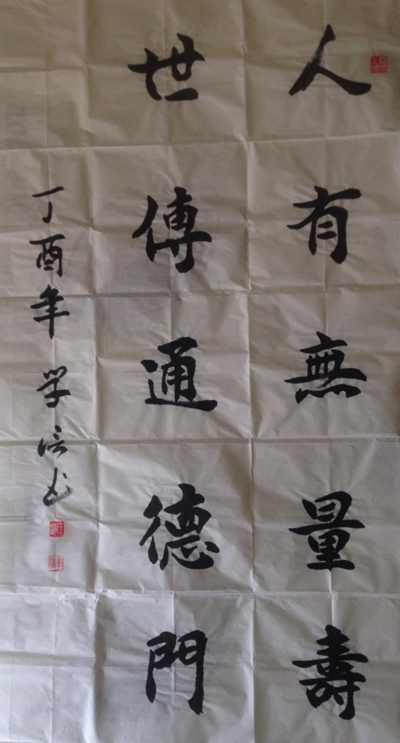 人有無量壽
世傳通德門
丁酉年學信书